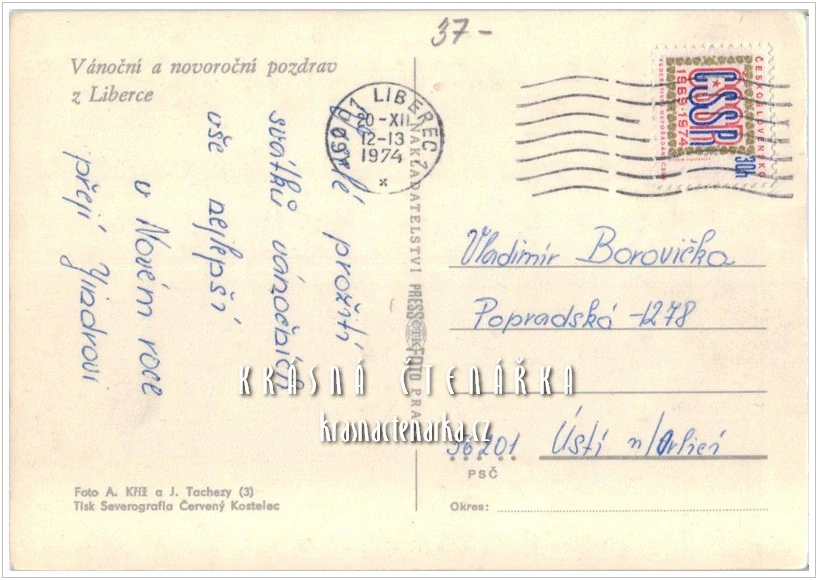 37-
Vánoční a novoroční pozdrav
z Liberce
LIBEREC 7
20-XII
12-13
1974
ČESKOSLOVENSKO
ČSSR
1969·1974
30h
prožití
svátků vánočních
vše nejlepší
v Novém roce
přejí Jindrovi
NAKLADATELSTVÍ PRESSFOTO PRA
Vladimír Borovička
Popradská -1278
56201 Ústí n/Orlicí
PSČ
Okres:
KRÁSNÁ ČTENÁŘKA
krasnactenarka.cz
Foto A. Kříž a J. Tachezy (3)
Tisk Severografia Červený Kostelec